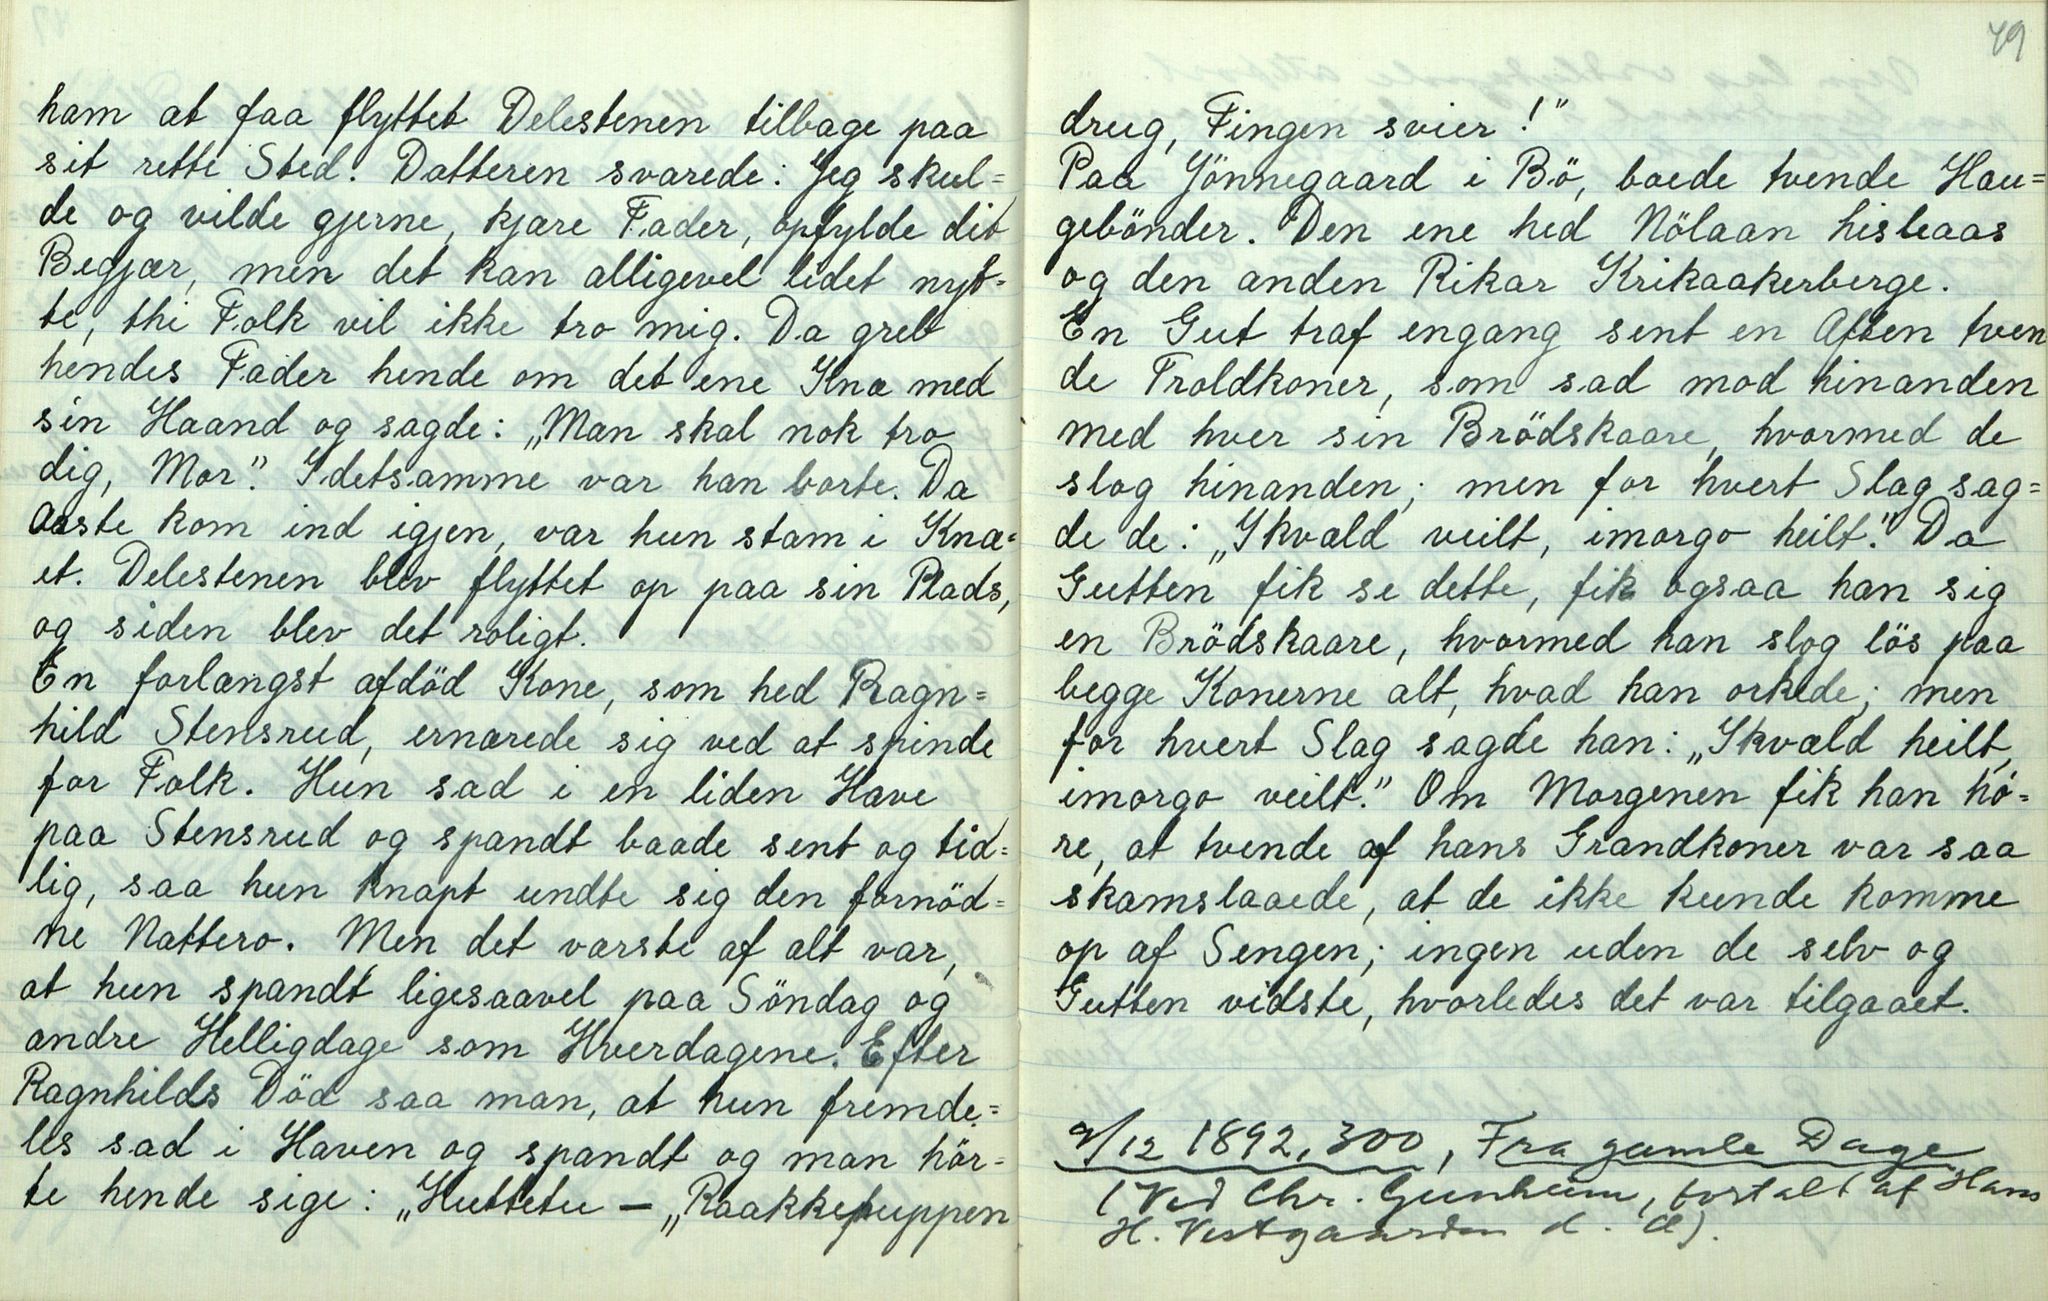 ham at faa flyttet Delestenen tilbage paa
sit rette Sted. Datteren svarede: Jeg skul=
de og vilde gjerne, kjære Fader, opfylde dit
Begjær, men det kan alligevel lidet nyt=
te, thi Folk vil ikke tro mig. Da greb
hendes Fader hende om det ene Knæ med
sin Haand og sagde: „Man skal nok tro
dig, Mor". I detsamme var han borte. Da
Aaste kom ind igjen, var hun stam i Knæ=
et. Delestenen blev flyttet op paa sin Plads,
og siden blev det roligt.
En forlængst afdöd Kone, som hed Ragn=
hild Stensrud, ernærede sig ved at spinde
for Folk. Hun sad i en liden Have
paa Stensrud og spandt baade sent og tid=
lig, saa hun knapt undte sig den fornöd=
ne Nattero. Men det værste af alt var,
at hun spandt ligesaavel paa Söndag og
andre Helligdage som Hverdagene. Efter
Ragnhilds Död saa man, at hun fremde=
les sad i Haven og spandt og man hör=
te hende sige: „Huttetu — „Raakkepuppen
49
drug, Fingen svier!"
Paa Jönnegaard i Bö, boede tvende Hau=
gebönder. Den ene hed Nölaan hisleaas
og den anden Rikar Krikaakerberge.
En Gut traf engang sent en Aften tven
de Troldkoner, som sad mod hinanden
med hver sin Brödskaare, hvormed de
slog hinanden; men for hvert Slag sag=
de de: „Ikvæld veilt, imorgo heilt." Da
Gutten fik se dette, fik ogsaa han sig
en Brödskaare, hvormed han slog lös paa
begge Konerne alt, hvad han orkede; men
for hvert Slag sagde han: „Ikvæld heilt,
imorgo veilt." Om Morgenen fik han hö=
re, at tvende af hans Grandkoner var saa
skamslaaede, at de ikke kunde komme
op af Sengen; ingen uden de selv og
Gutten vidste, hvorledes det var tilgaaet.
9/12 1892, 300, Fra gamle Dage
(Ved Chr. Gunheim, fortalt af Hans
H. Vestgaarden d. æ).